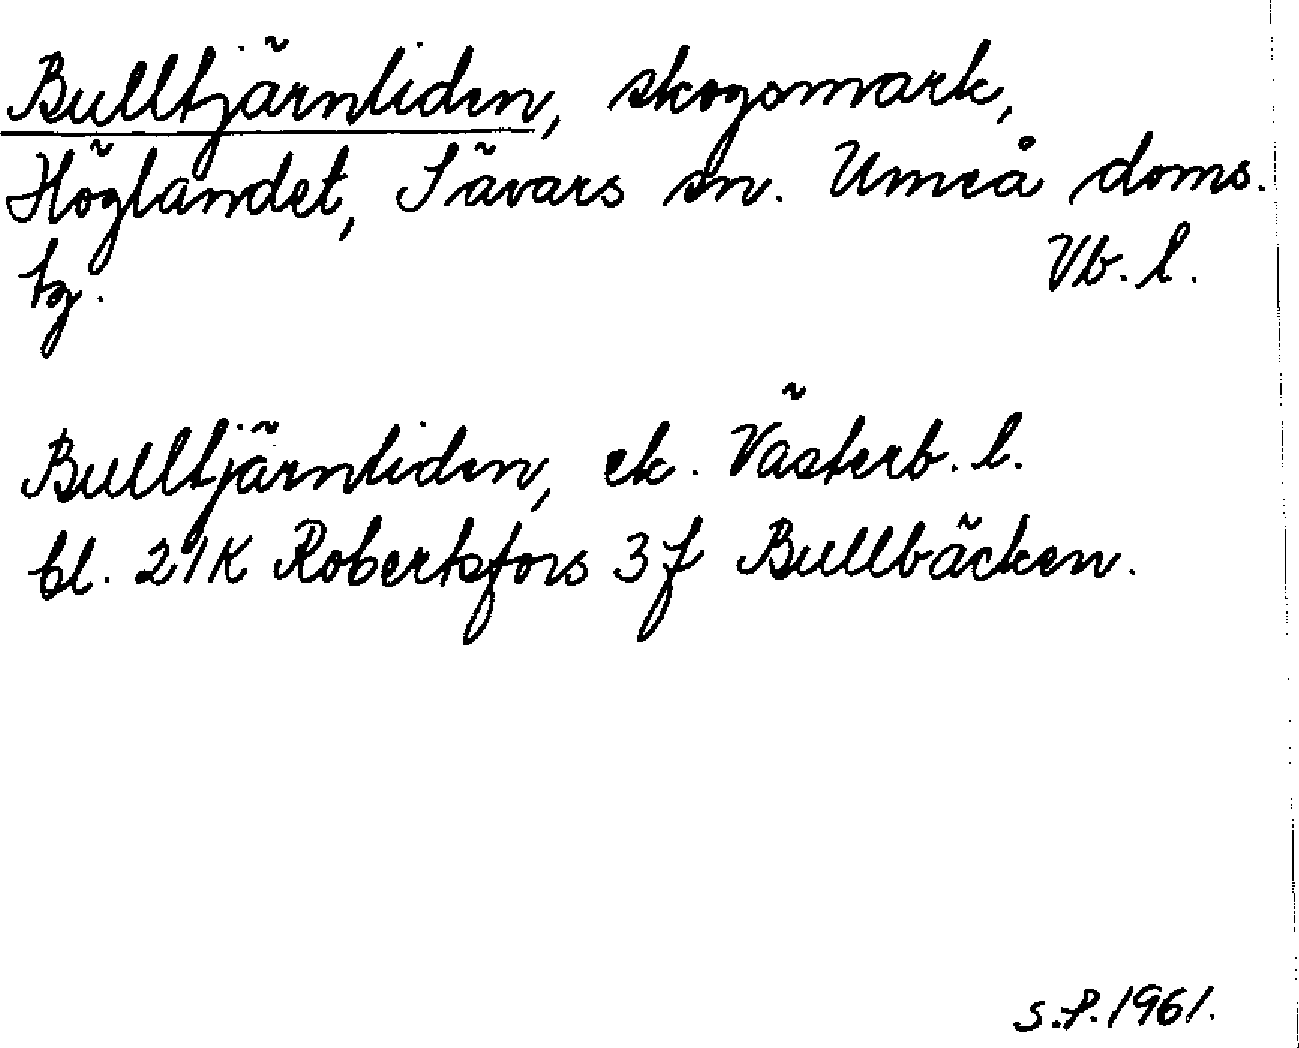 Bulltjärnliden, skogsmark,
Höglandet, Sävars sn. Umeå doms.
tg. Vb. l.
Bulltjärnliden, ek. Västerb. l.
bl. 21K Robertsfors 3f Bullbäcken.
S.P. 1961.